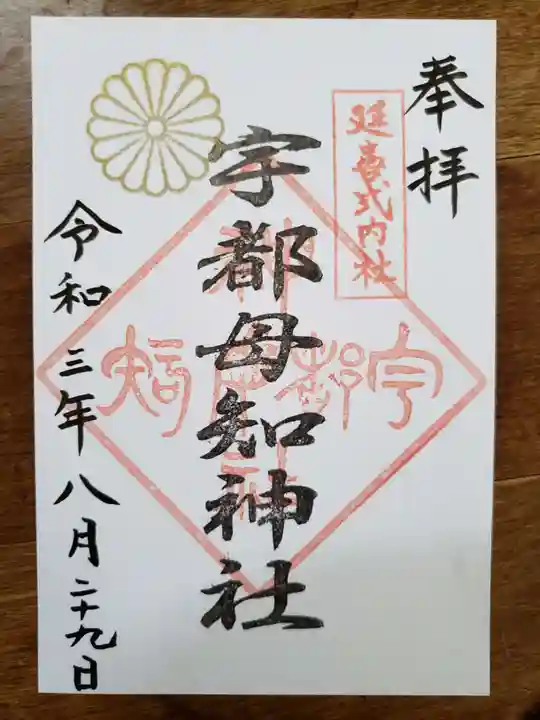 奉拝
延喜式内社
宇都母知神社
令和三年八月二十九日